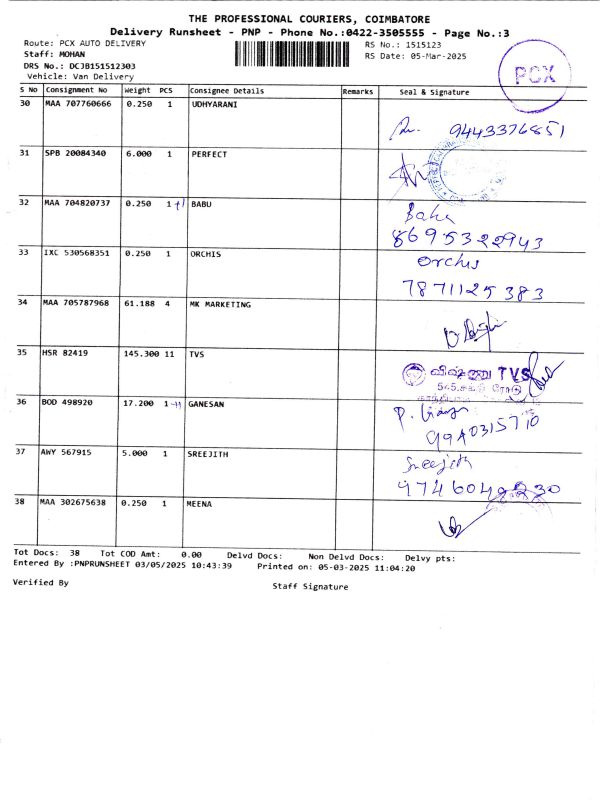 THE PROFESSIONAL COURIERS, COIMBATORE
Delivery Runsheet - PNP - Phone No.:0422-3505555 - Page No.:3
Route: PCX AUTO DELIVERY RS No.: 1515123
Staff: MOHAN RS Date: 05-Mar-2025
DRS No.: DCJB151512303
Vehicle: Van Delivery
PCX
S No Consignment No Weight PCS Consignee Details Remarks Seal & Signature
30 MAA 707760666 0.250 1 UDHYARANI
9443376851
31 SPB 20084340 6.000 1 PERFECT
32 MAA 704820737 0.250 1 BABU
Babu
8695322943
33 IXC 530568351 0.250 1 ORCHIS Orchis
7871125383
34 MAA 705787968 61.188 4 MK MARKETING
35 HSR 82419 145.300 11 TVS
TVS
36 BOD 498920 17.200 1 GANESAN
9940315710
37 AWY 567915 5.000 1 SREEJITH Sreejith
9746048230
38 MAA 302675638 0.250 1 MEENA
Tot Docs: 38 Tot COD Amt: 0.00 Delvd Docs: Non Delvd Docs: Delvy pts:
Entered By :PNPRUNSHEET 03/05/2025 10:43:39 Printed on: 05-03-2025 11:04:20
Verified By Staff Signature